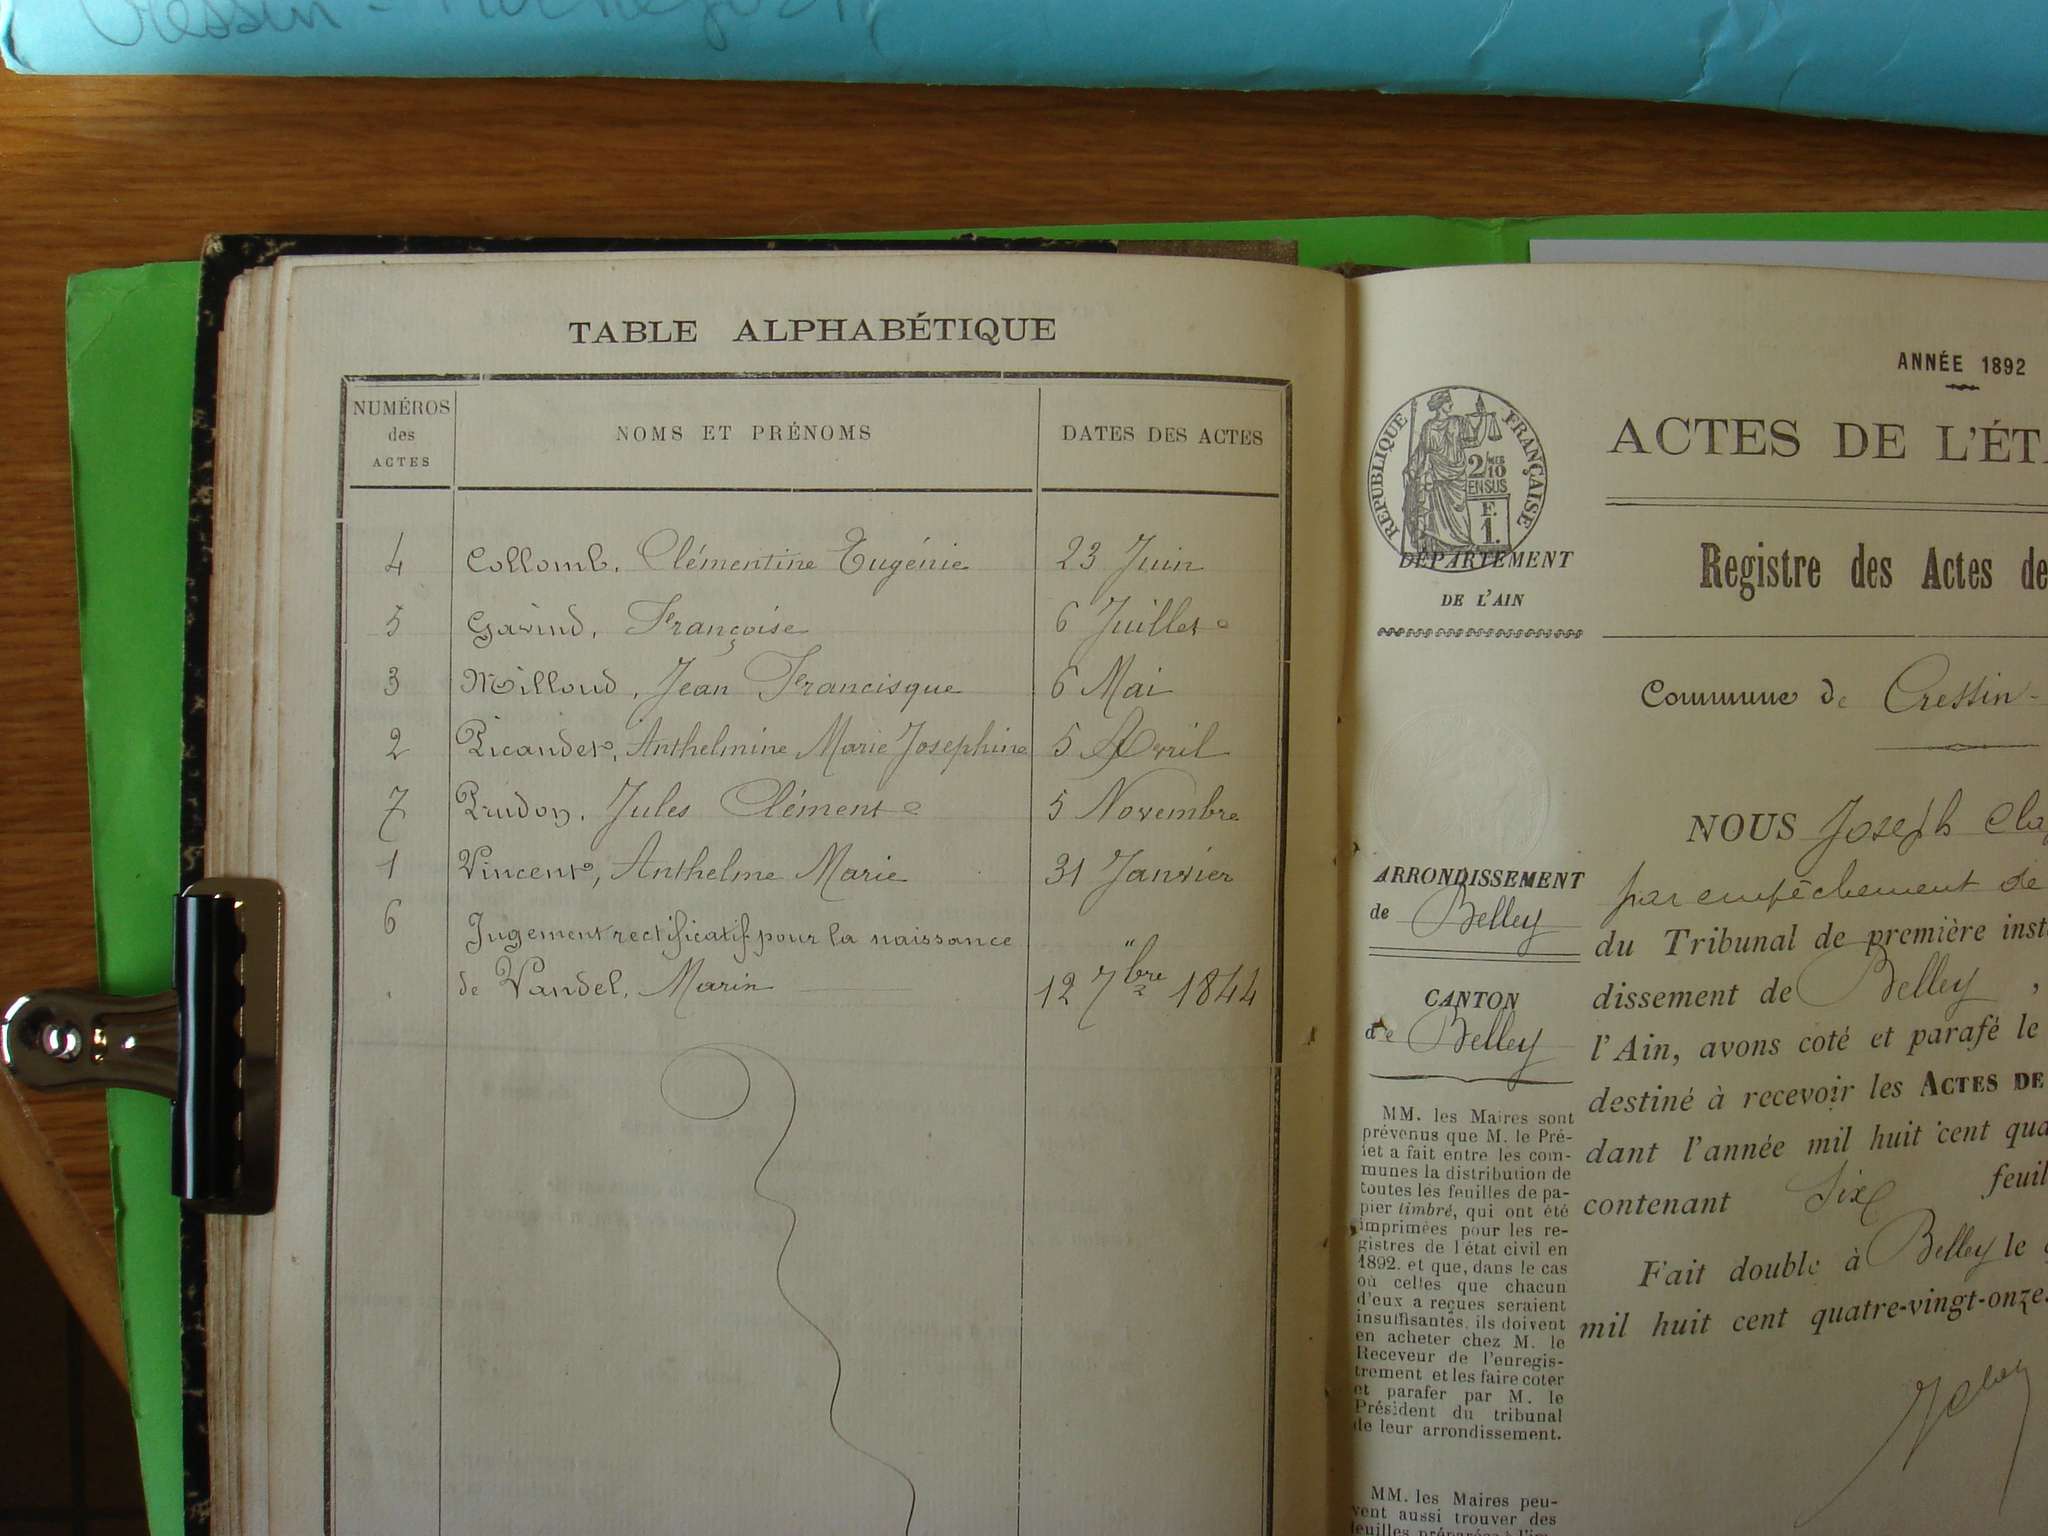 Cressin - Rochefort
TABLE ALPHABÉTIQUE
NUMÉROS des ACTES NOMS ET PRÉNOMS DATES DES ACTES
4 Collomb, Clémentine Eugénie 23 Juin
5 Gavind, Françoise 6 Juillet
3 Milloud, Jean Francisque 6 Mai
2 Picandet, Anthelmine Marie Josephine 5 Avril
7 Prudon, Jules Clément 5 Novembre
1 Vincent, Anthelme Marie 31 Janvier
6 Jugement rectificatif pour la naissance "
de Vandel, Marin 12 7bre 1844
ANNÉE 1892
RÉPUBLIQUE FRANÇAISE
2/10
EN SUS
F.
1.
ACTES DE L'ÉT
DÉPARTEMENT
DE L'AIN
Registre des Actes de
Commune de Cressin-
NOUS Joseph
ARRONDISSEMENT
de Belley
par empêchement de
du Tribunal de première inst
dissement de Belley,
CANTON
de Belley
l'Ain, avons coté et parafé le
destiné à recevoir les ACTES DE
dant l'année mil huit cent qua
contenant Six feuil
Fait double à Belley le
mil huit cent quatre-vingt-onze.
MM. les Maires sont
prévenus que M. le Pré-
fet a fait entre les com-
munes la distribution de
toutes les feuilles de pa-
pier timbré, qui ont été
imprimées pour les re-
gistres de l'état civil en
1892. et que, dans le cas
où celles que chacun
d'eux a reçues seraient
insuffisantes, ils doivent
en acheter chez M. le
Receveur de l'enregis-
trement et les faire coter
et parafer par M. le
Président du tribunal
de leur arrondissement.
MM. les Maires peu-
vent aussi trouver des
feuilles préparées à l'im-